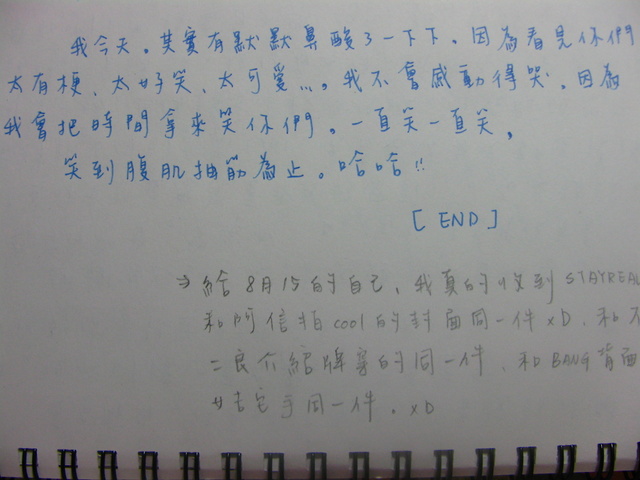 我今天。其實有默默鼻酸了一下下。因為看見你們
太有梗、太好笑、太可愛...。我不會感動得哭。因為
我會把時間拿來笑你們。一直笑一直笑,
笑到腹肌抽筋為止。哈哈!!
[ END ]
⇒ 給8月15的自己、我真的收到 STAYREAL
和阿信拍cool的封面同一件 xD、和不
二良介紹牌寄的同一件、和BANG背面
宅手同一件。xD